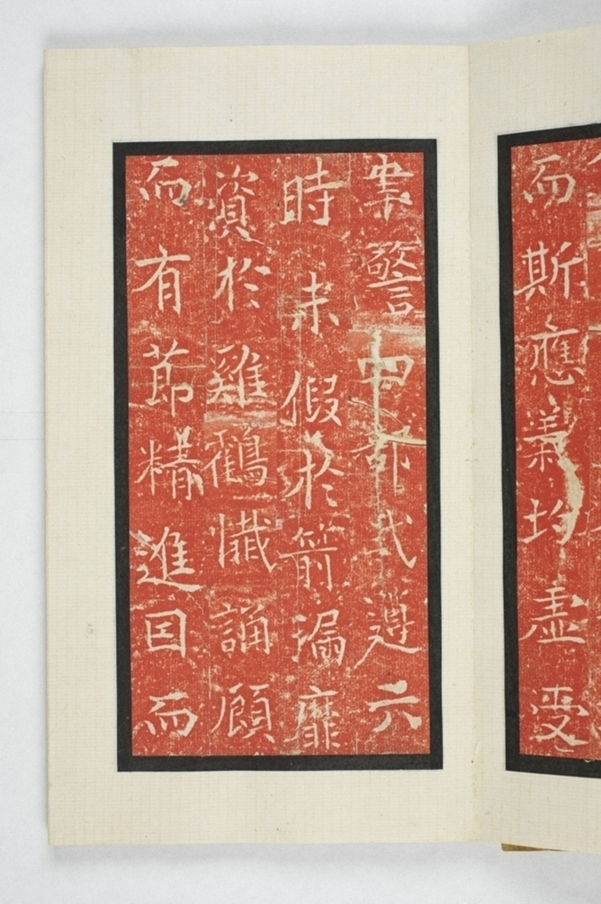 而斯應義均虛受
案警四部式遵六
時未假於箭漏靡
資於雞鶴懺誦願
而有節精進囙而